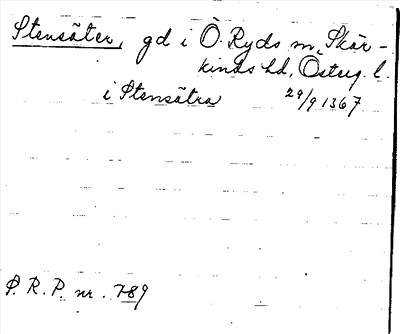 Stensäter, gd i Ö. Ryds sn, Skär-
kinds hd, Österg. l.
i Stensätra 29/9 1367
S. R. P. nr. 789